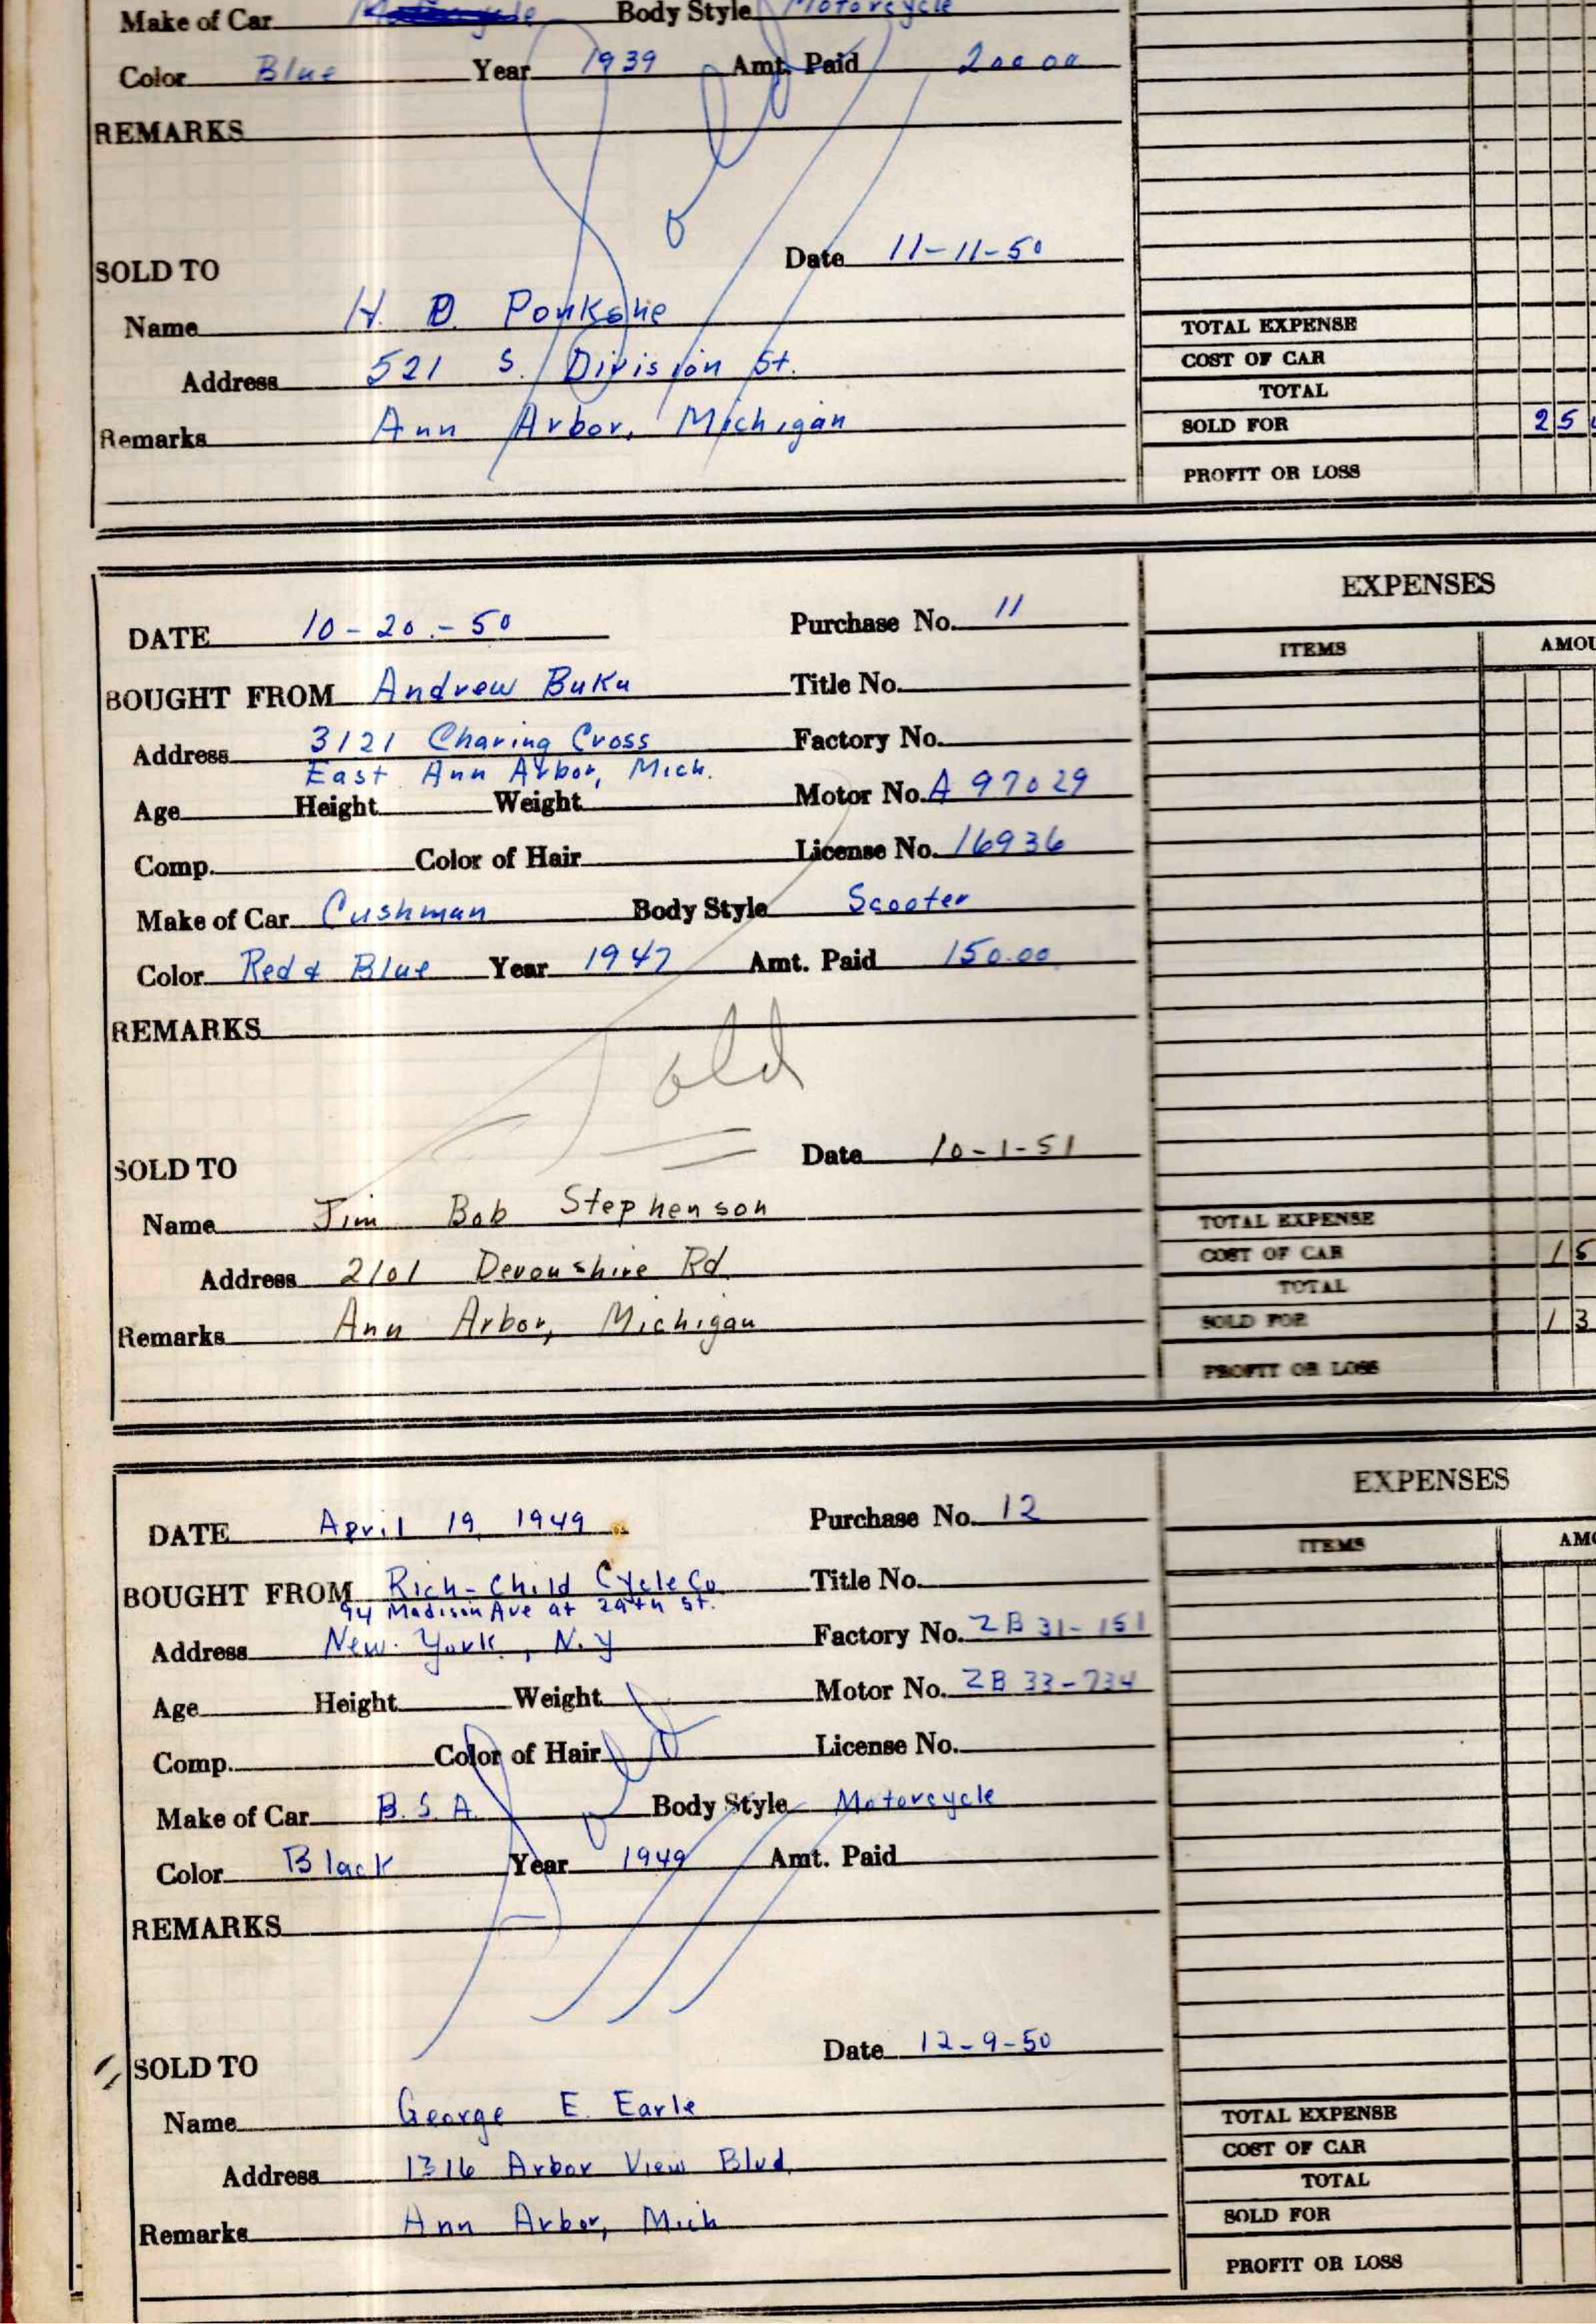 Make of Car Body Style Motorcycle
Color Blue Year 1939 Amt. Paid 200 00
REMARKS
Sold
SOLD TO Date 11-11-50
Name H. D. Ponkshe
Address 521 S. Division St.
Remarks Ann Arbor, Michigan
TOTAL EXPENSE
COST OF CAR
TOTAL
SOLD FOR 25
PROFIT OR LOSS
DATE 10-20-50 Purchase No. 11
BOUGHT FROM Andrew Buku Title No.
Address 3121 Charing Cross Factory No.
East Ann Arbor, Mich.
Age Height Weight Motor No. A 97029
Comp. Color of Hair License No. 16936
Make of Car Cushman Body Style Scooter
Color Red & Blue Year 1947 Amt. Paid 150.00
REMARKS
Sold
SOLD TO Date 10-1-51
Name Jim Bob Stephenson
Address 2101 Devonshire Rd
Remarks Ann Arbor, Michigan
EXPENSES
ITEMS AMOU
TOTAL EXPENSE
COST OF CAR 15
TOTAL
SOLD FOR 13
PROFIT OR LOSS
DATE April 19, 1949 Purchase No. 12
BOUGHT FROM Rich-Child Cycle Co Title No.
94 Madison Ave at 29th St.
Address New York, N.Y Factory No. ZB 31-151
Age Height Weight Motor No. ZB 33-734
Comp. Color of Hair License No.
Make of Car B.S.A. Body Style Motorcycle
Color Black Year 1949 Amt. Paid
REMARKS
Sold
SOLD TO Date 12-9-50
Name George E. Earle
Address 1316 Arbor View Blvd.
Remarks Ann Arbor, Mich
EXPENSES
ITEMS AMO
TOTAL EXPENSE
COST OF CAR
TOTAL
SOLD FOR
PROFIT OR LOSS